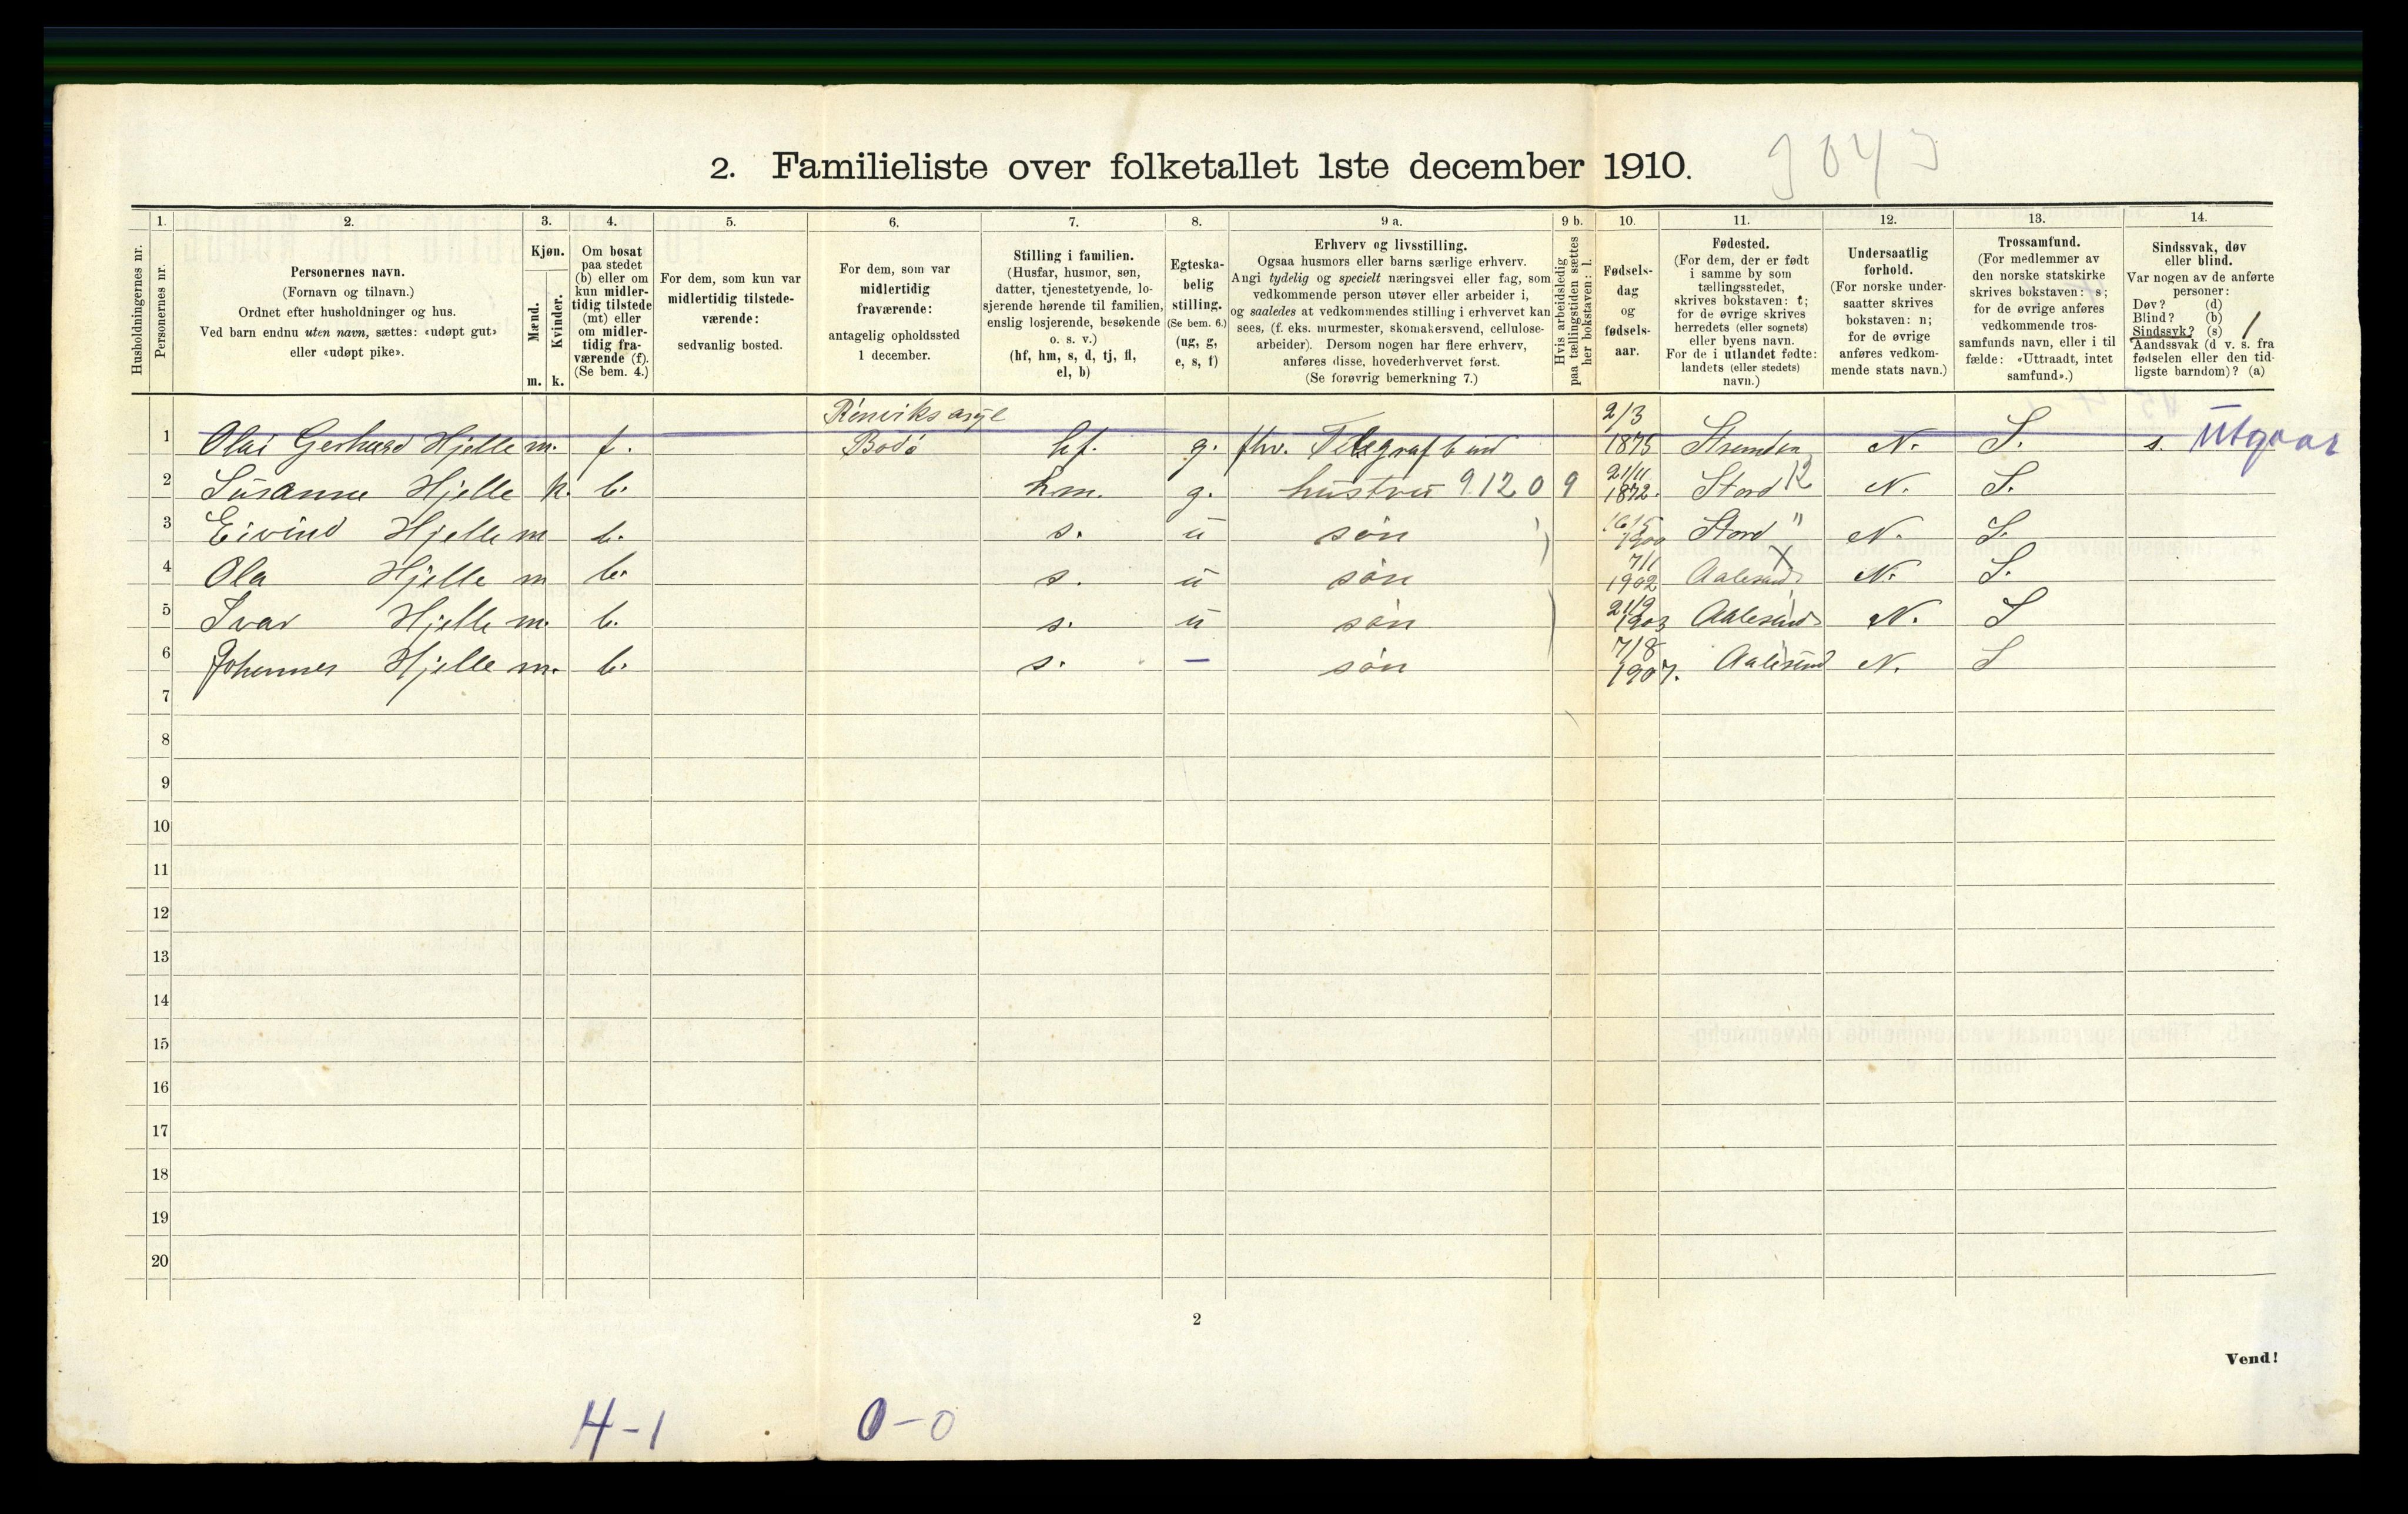 2. Familieliste over folketallet 1ste december 1910.
Husholdningernes nr.
1.
Personernes nr.
2.
Personernes navn.
(Fornavn og tilnavn.)
Ordnet efter husholdninger og hus.
Ved barn endnu uten navn, sættes: «udøpt gut»
eller «udøpt pike».
3.
Kjøn.
Mænd.
Kvinder.
m. k.
4.
Om bosat
paa stedet
(b) eller om
kun midler-
tidig tilstede
(mt) eller
om midler-
tidig fra-
værende (f).
(Se bem. 4.)
5.
For dem, som kun var
midlertidig tilstede-
værende:
sedvanlig bosted.
6.
For dem, som var
midlertidig
fraværende:
antagelig opholdssted
1 december.
7.
Stilling i familien.
(Husfar, husmor, søn,
datter, tjenestetyende, lo-
sjerende hørende til familien,
enslig losjerende, besøkende
o. s. v.)
(hf, hm, s, d, tj, fl,
el, b)
8.
Egteska-
belig
stilling.
(Se bem. 6.)
(ug, g,
e, s, f)
9 a.
Erhverv og livsstilling.
Ogsaa husmors eller barns særlige erhverv.
Angi tydelig og specielt næringsvei eller fag, som
vedkommende person utøver eller arbeider i,
og saaledes at vedkommendes stilling i erhvervet kan
sees, (f. eks. murmester, skomakersvend, cellulose-
arbeider). Dersom nogen har flere erhverv,
anføres disse, hovederhvervet først.
(Se forøvrig bemerkning 7.)
9 b.
Hvis arbeidsledig
paa tællingstiden sættes
her bokstaven: l.
10.
Fødsels-
dag
og
fødsels-
aar.
11.
Fødested.
(For dem, der er født
i samme by som
tællingsstedet,
skrives bokstaven: t;
for de øvrige skrives
herredets (eller sognets)
eller byens navn.
For de i utlandet fødte:
landets (eller stedets)
navn.)
12.
Undersaatlig
forhold.
(For norske under-
saatter skrives
bokstaven: n;
for de øvrige
anføres vedkom-
mende stats navn.)
13.
Trossamfund.
(For medlemmer av
den norske statskirke
skrives bokstaven: s;
for de øvrige anføres
vedkommende tros-
samfunds navn, eller i til
fælde: «Uttraadt, intet
samfund».)
14.
Sindssvak, døv
eller blind.
Var nogen av de anførte
personer:
Døv? (d)
Blind? (b)
Sindssyk? (s) /
Aandssvak (d v. s. fra
fødselen eller den tid-
ligste barndom)? (a)
1 Olai Gerhard Hjelle m. f. Bodø hf. g. fhv. Telegrafbud 2/3 1875 N. S. s. Utgaar
2 Susanne Hjelle k. b. hm. g. hustru 9120 9 21/11 1872. Stord 12 N. S.
3 Eivind Hjelle m b. s. u søn 16/5 1900 Stord " N. S.
4 Ola Hjelle m b. s. u søn 7/1 1902 Aalesund X N. S.
5 Ivar Hjelle m. b. s. u søn 21/2 1903 Aalesund N. S
6 Johannes Hjelle m. b. s. – søn 7/8 1907. Aalesund N. S
7
8
9
10
11
12
13
14
15
16
17
18
19
20
2
Vend!
4-1 0-0